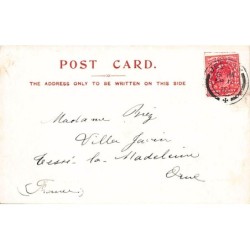 POST CARD.
THE ADDRESS ONLY TO BE WRITTEN ON THIS SIDE
Madame
Villa
Tessé la Madeleine
Orne
(France)